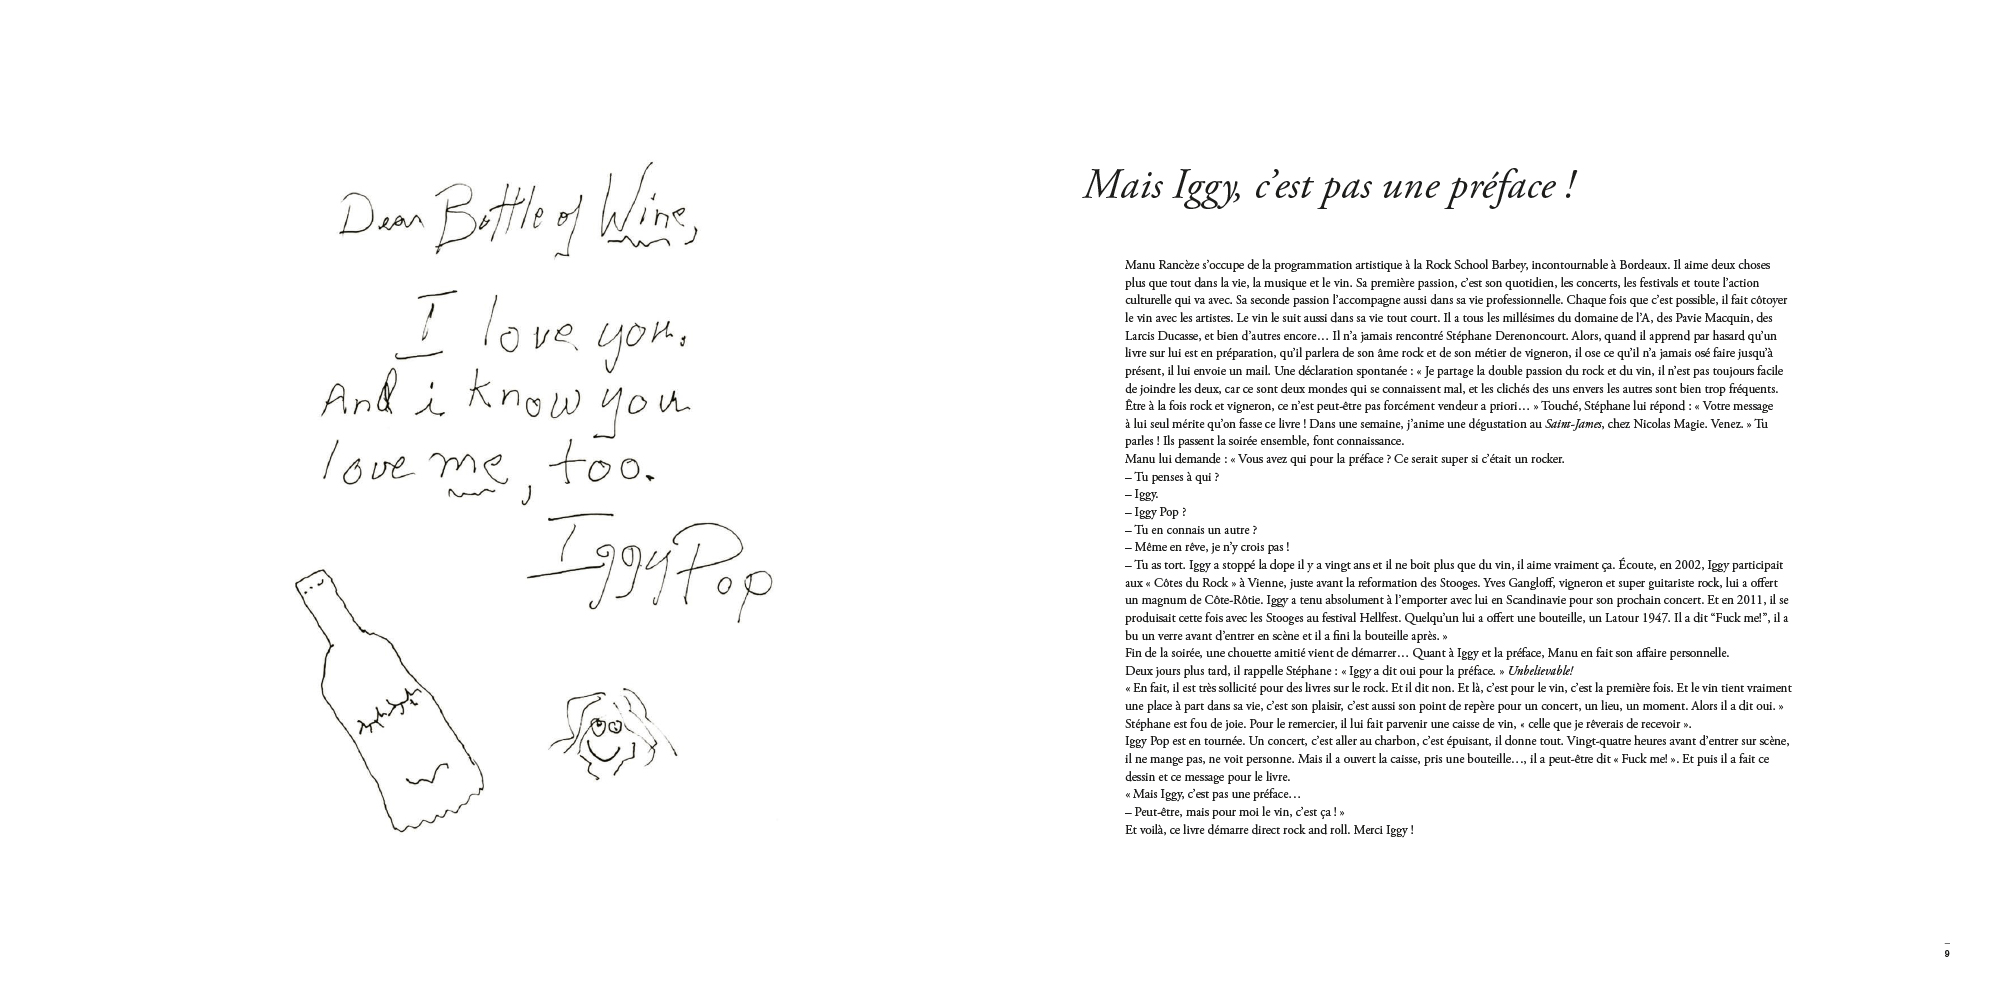 Dear Bottle of Wine,
I love you.
And i know you
love me, too.
Iggy Pop
Mais Iggy, c’est pas une préface !
Manu Rancèze s’occupe de la programmation artistique à la Rock School Barbey, incontournable à Bordeaux. Il aime deux choses
plus que tout dans la vie, la musique et le vin. Sa première passion, c’est son quotidien, les concerts, les festivals et toute l’action
culturelle qui va avec. Sa seconde passion l’accompagne aussi dans sa vie professionnelle. Chaque fois que c’est possible, il fait côtoyer
le vin avec les artistes. Le vin le suit aussi dans sa vie tout court. Il a tous les millésimes du domaine de l’A, des Pavie Macquin, des
Larcis Ducasse, et bien d’autres encore… Il n’a jamais rencontré Stéphane Derenoncourt. Alors, quand il apprend par hasard qu’un
livre sur lui est en préparation, qu’il parlera de son âme rock et de son métier de vigneron, il ose ce qu’il n’a jamais osé faire jusqu’à
présent, il lui envoie un mail. Une déclaration spontanée : « Je partage la double passion du rock et du vin, il n’est pas toujours facile
de joindre les deux, car ce sont deux mondes qui se connaissent mal, et les clichés des uns envers les autres sont bien trop fréquents.
Être à la fois rock et vigneron, ce n’est peut-être pas forcément vendeur a priori… » Touché, Stéphane lui répond : « Votre message
à lui seul mérite qu’on fasse ce livre ! Dans une semaine, j’anime une dégustation au Saint-James, chez Nicolas Magie. Venez. » Tu
parles ! Ils passent la soirée ensemble, font connaissance.
Manu lui demande : « Vous avez qui pour la préface ? Ce serait super si c’était un rocker.
– Tu penses à qui ?
– Iggy.
– Iggy Pop ?
– Tu en connais un autre ?
– Même en rêve, je n’y crois pas !
– Tu as tort. Iggy a stoppé la dope il y a vingt ans et il ne boit plus que du vin, il aime vraiment ça. Écoute, en 2002, Iggy participait
aux « Côtes du Rock » à Vienne, juste avant la reformation des Stooges. Yves Gangloff, vigneron et super guitariste rock, lui a offert
un magnum de Côte-Rôtie. Iggy a tenu absolument à l’emporter avec lui en Scandinavie pour son prochain concert. Et en 2011, il se
produisait cette fois avec les Stooges au festival Hellfest. Quelqu’un lui a offert une bouteille, un Latour 1947. Il a dit “Fuck me!”, il a
bu un verre avant d’entrer en scène et il a fini la bouteille après. »
Fin de la soirée, une chouette amitié vient de démarrer… Quant à Iggy et la préface, Manu en fait son affaire personnelle.
Deux jours plus tard, il rappelle Stéphane : « Iggy a dit oui pour la préface. » Unbelievable!
« En fait, il est très sollicité pour des livres sur le rock. Et il dit non. Et là, c’est pour le vin, c’est la première fois. Et le vin tient vraiment
une place à part dans sa vie, c’est son plaisir, c’est aussi son point de repère pour un concert, un lieu, un moment. Alors il a dit oui. »
Stéphane est fou de joie. Pour le remercier, il lui fait parvenir une caisse de vin, « celle que je rêverais de recevoir ».
Iggy Pop est en tournée. Un concert, c’est aller au charbon, c’est épuisant, il donne tout. Vingt-quatre heures avant d’entrer sur scène,
il ne mange pas, ne voit personne. Mais il a ouvert la caisse, pris une bouteille…, il a peut-être dit « Fuck me! ». Et puis il a fait ce
dessin et ce message pour le livre.
« Mais Iggy, c’est pas une préface…
– Peut-être, mais pour moi le vin, c’est ça ! »
Et voilà, ce livre démarre direct rock and roll. Merci Iggy !
9